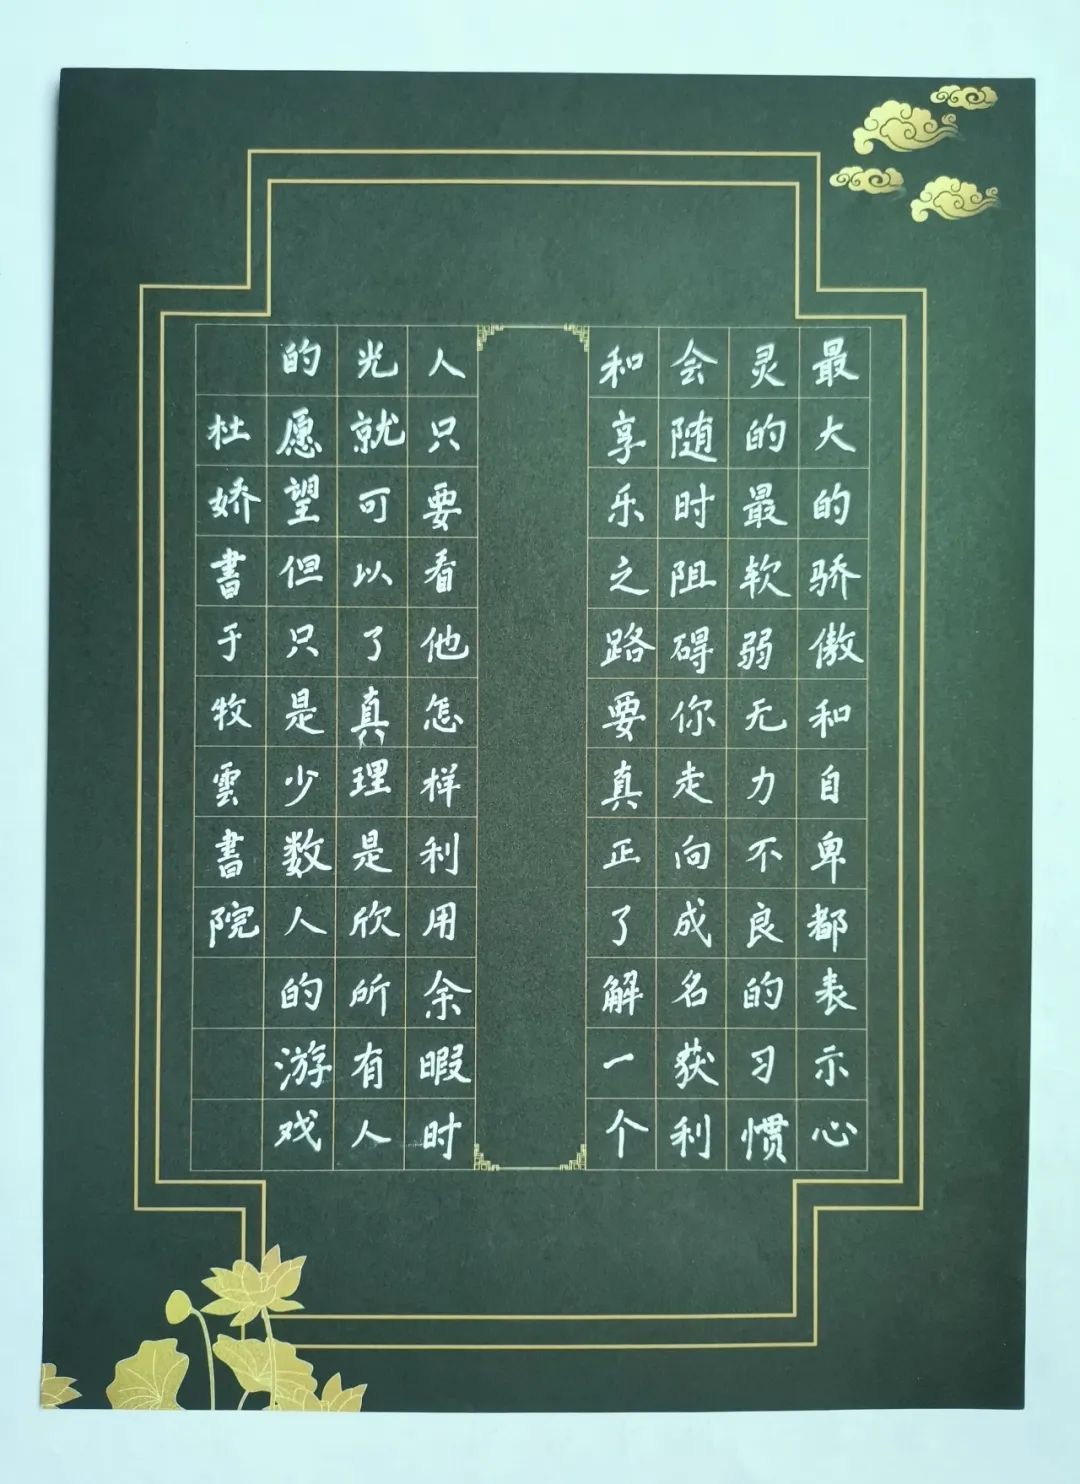 最大的骄傲和自卑都表示心
灵的最软弱无力不良的习惯
会随时阻碍你走向成名获利
和享乐之路要真正了解一个
人只要看他怎样利用余暇时
光就可以了真理是欣所有人
的愿望但只是少数人的游戏
杜娇書于牧雲書院